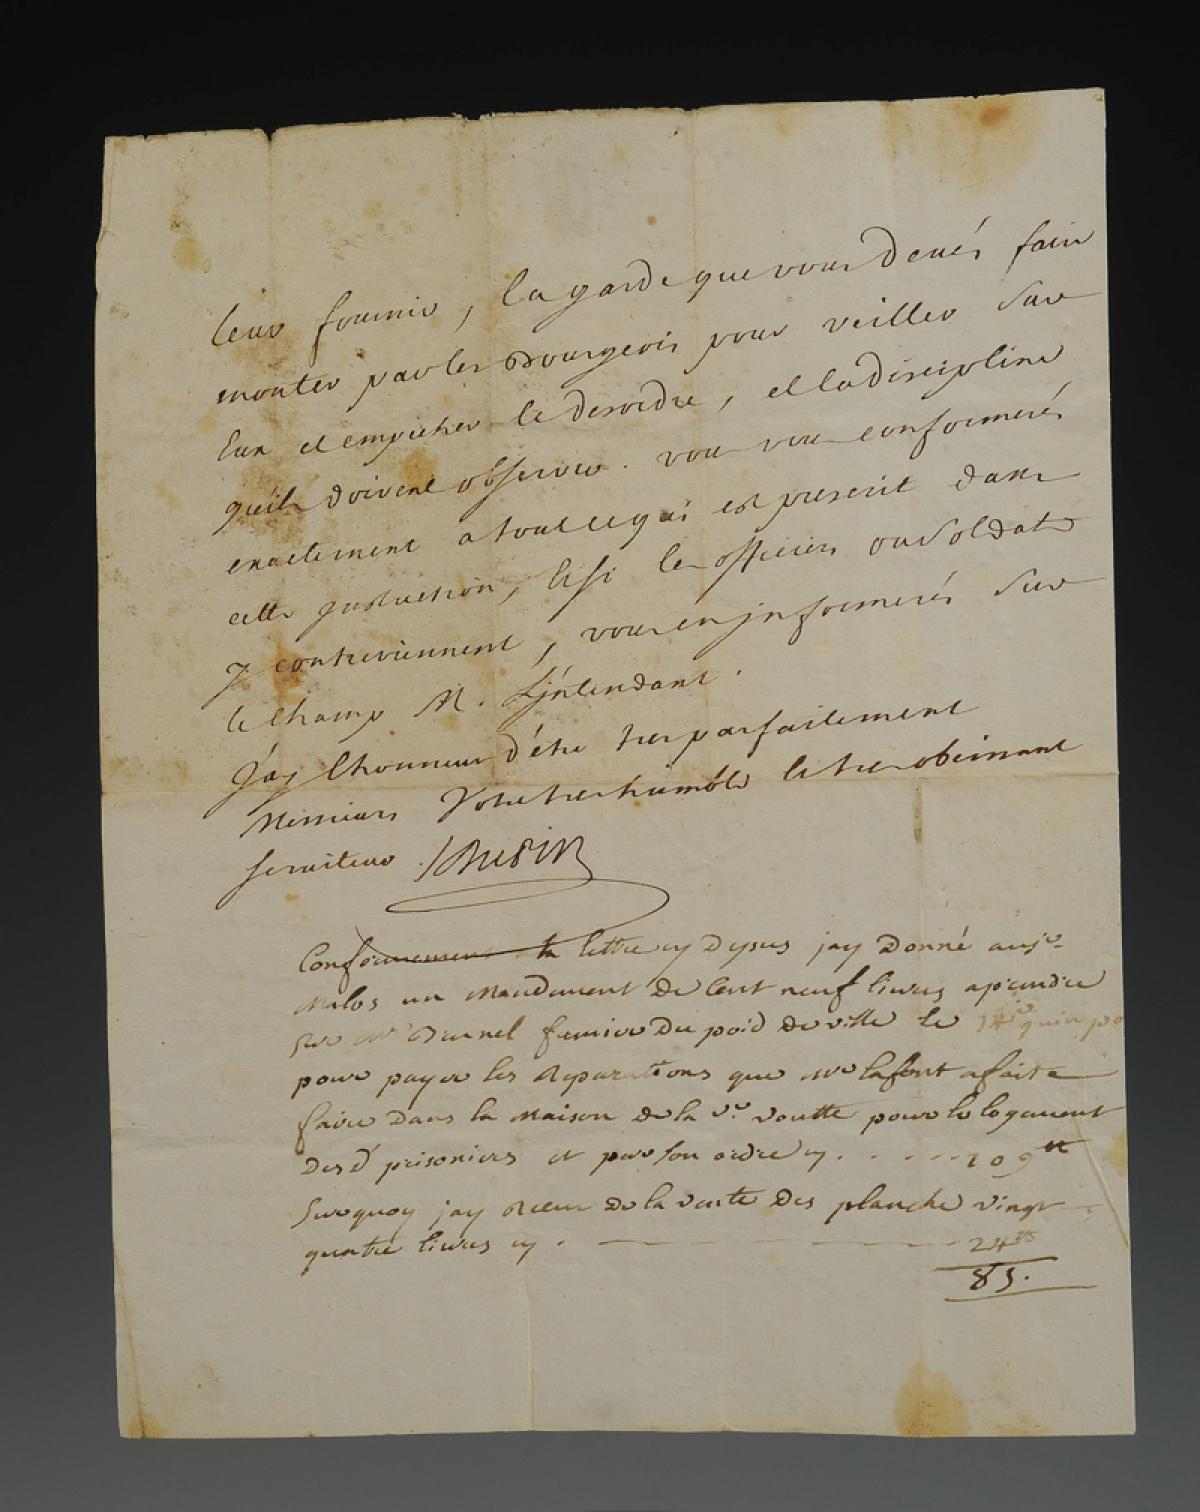 leur fournir, la garde que vous devés faire
monter par les Bourgeois pour veiller sur
Eux et empecher le desordre, et la discipline
quils doivent observer. vous vous conformerés
exactement a tout ce qui est prescrit dans
cette jnstruction, et si les officiers ou soldats
y contreviennent, vous en jnformerés sur
le champ M. L'jntendant.
J'ay lhonneur d'étre tres parfaitement
Messieurs Votre tres humble et tres obeissant
serviteur
Conformement la lettre cy dessus jay donné au sr
Malos un Mandement de Cent neuf livres aprendre
sur Mr fermier du poid de ville le
pour payer les Reparations que Mr lafont a fait
faire dans la Maison de la ve. voutte pour le logement
des d prisoniers et par son ordre cy . . . . . . 109 tt
Sur quoy jay Receu de la vente des planche vingt
quatre livres cy . 24 tt
85.